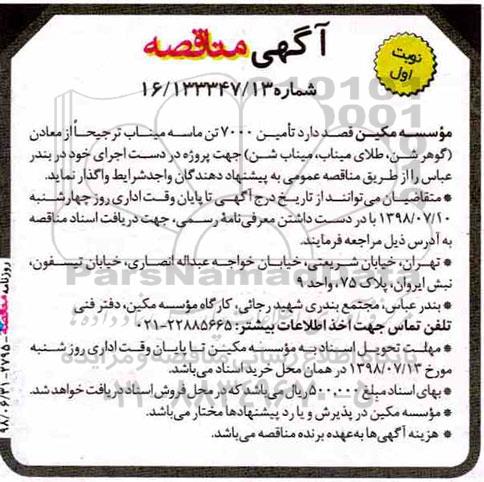 آگهی مناقصه
نوبت
اول
شماره ۱۶/۱۳۳۳۴۷/۱۳
مؤسسه مکین قصد دارد تأمین ۷۰۰۰ تن ماسه میناب ترجیحاً از معادن
(گوهر شن، طلای میناب، میناب شن) جهت پروژه در دست اجرای خود در بندر
عباس را از طریق مناقصه عمومی به پیشنهاد دهندگان واجد شرایط واگذار نماید.
* متقاضیان می‌توانند از تاریخ درج آگهی تا پایان وقت اداری روز چهارشنبه
۱۳۹۸/۰۷/۱۰ با در دست داشتن معرفی‌نامهٔ رسمی، جهت دریافت اسناد مناقصه
به آدرس ذیل مراجعه فرمایند.
* تهران، خیابان شریعتی، خیابان خواجه عبداله انصاری، خیابان تیسفون،
نبش ایروان، پلاک ۷۵، واحد ۹
* بندر عباس، مجتمع بندری شهید رجائی، کارگاه مؤسسه مکین، دفتر فنی
تلفن تماس جهت اخذ اطلاعات بیشتر: ۲۲۸۸۵۶۶۵-۰۲۱
* مهلت تحویل اسناد به مؤسسه مکین تا پایان وقت اداری روز شنبه
مورخ ۱۳۹۸/۰۷/۱۳ در همان محل خرید اسناد می‌باشد.
* بهای اسناد مبلغ ۵۰۰۰۰۰ ریال می‌باشد که در محل فروش اسناد دریافت خواهد شد.
* مؤسسه مکین در پذیرش و یا رد پیشنهادها مختار می‌باشد.
* هزینه آگهی‌ها به عهده برنده مناقصه می‌باشد.
روزنامه مناقصه ۲۷۹۵-۹۸/۰۶/۳۱
ParsNamadData